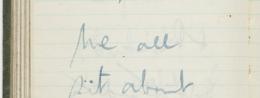 We all
sit about